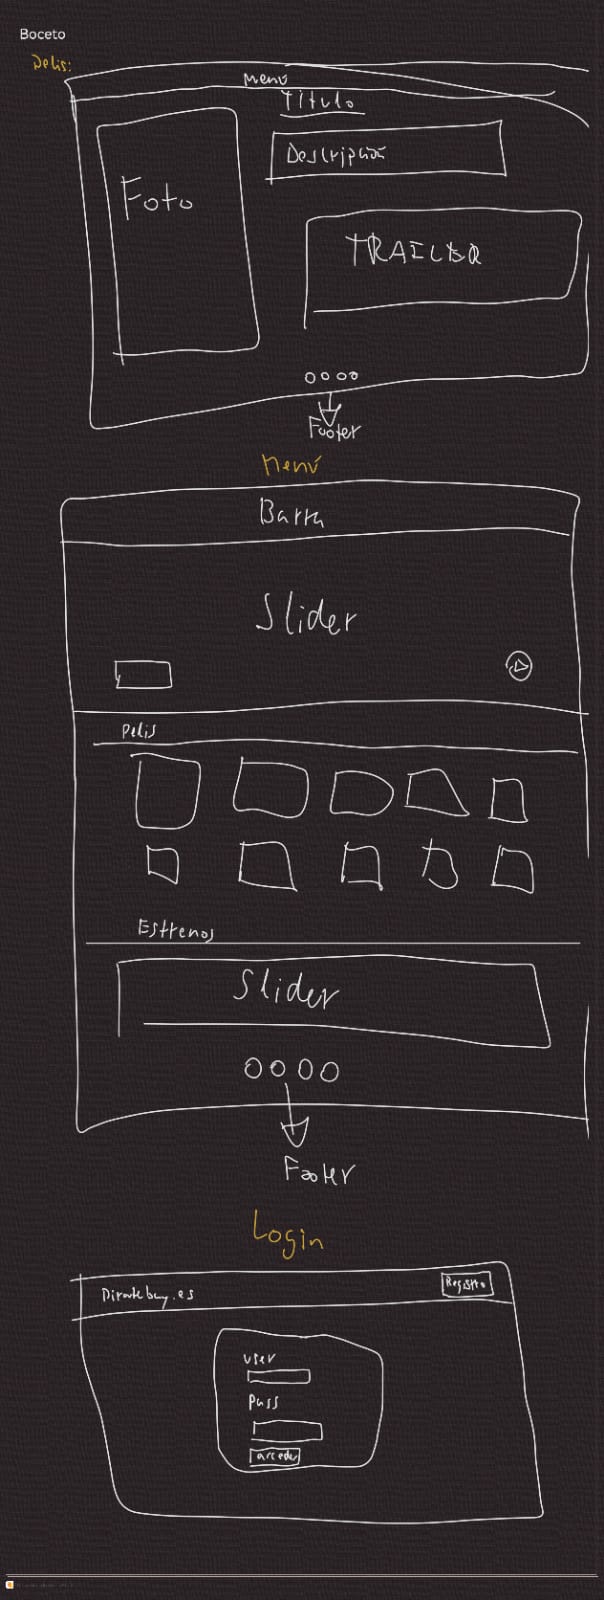 Boceto
Pelis:
Menú
Título
Descripción
Foto
TRAILER
Footer
Menú
Barra
Slider
Pelis
Estrenos
Slider
Footer
Login
Piratebay.es
Registro
User
Pass
acceder